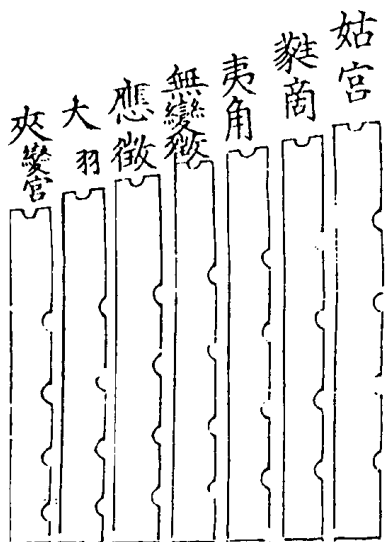 姑宮
蕤商
夷角
無變徵
應徵
大羽
夾變宮